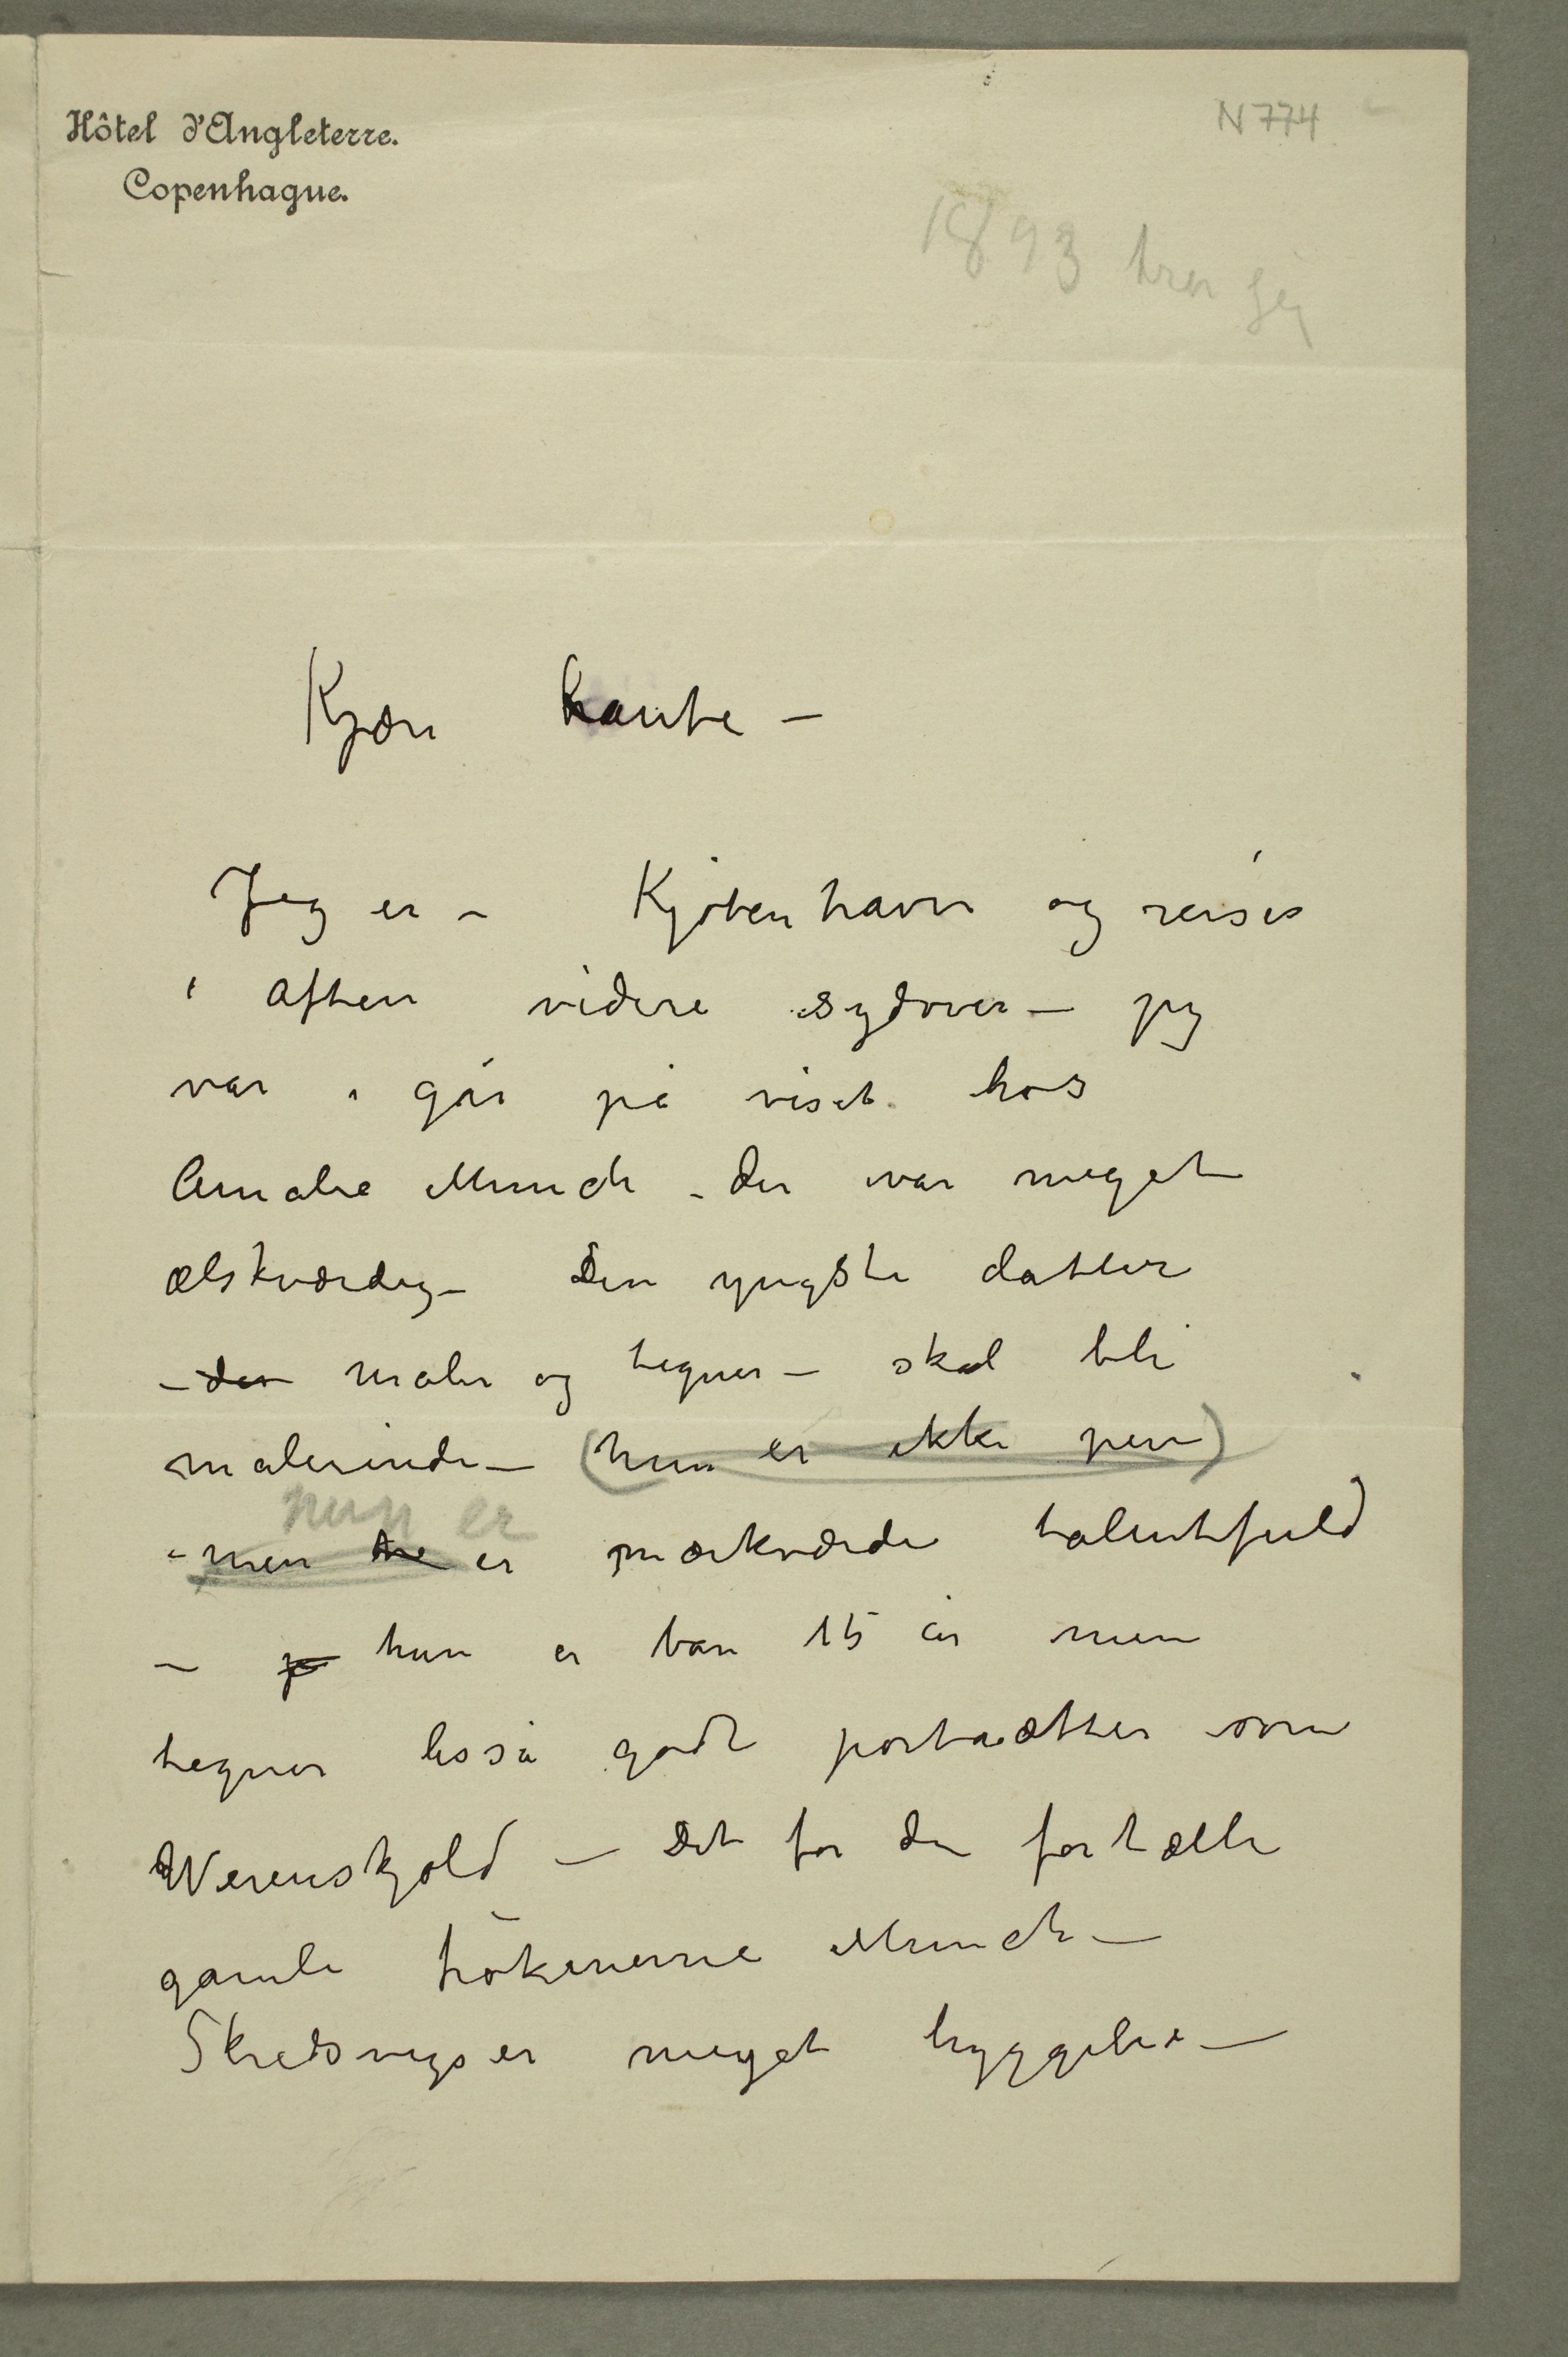 Hôtel d'Angleterre.
Copenhague.
N 774
1893 tror jeg
Kjære tante –
Jeg er i Kjøbenhavn og reiser
i aften videre sydover – jeg
var i går på visit hos
Amalie Munch – der var meget
elskværdig – Den yngste datter
– der maler og tegner – skal bli
malerinde – (hun er ikke pen)
hun er
– men er mærkværdi talentfuld
– hun er bare 15 år men
tegner lisså godt portrætter som
Werenskjold – Det får du fortælle
gamle frøknerne Munch –
Skredsvigs er meget hyggelie –